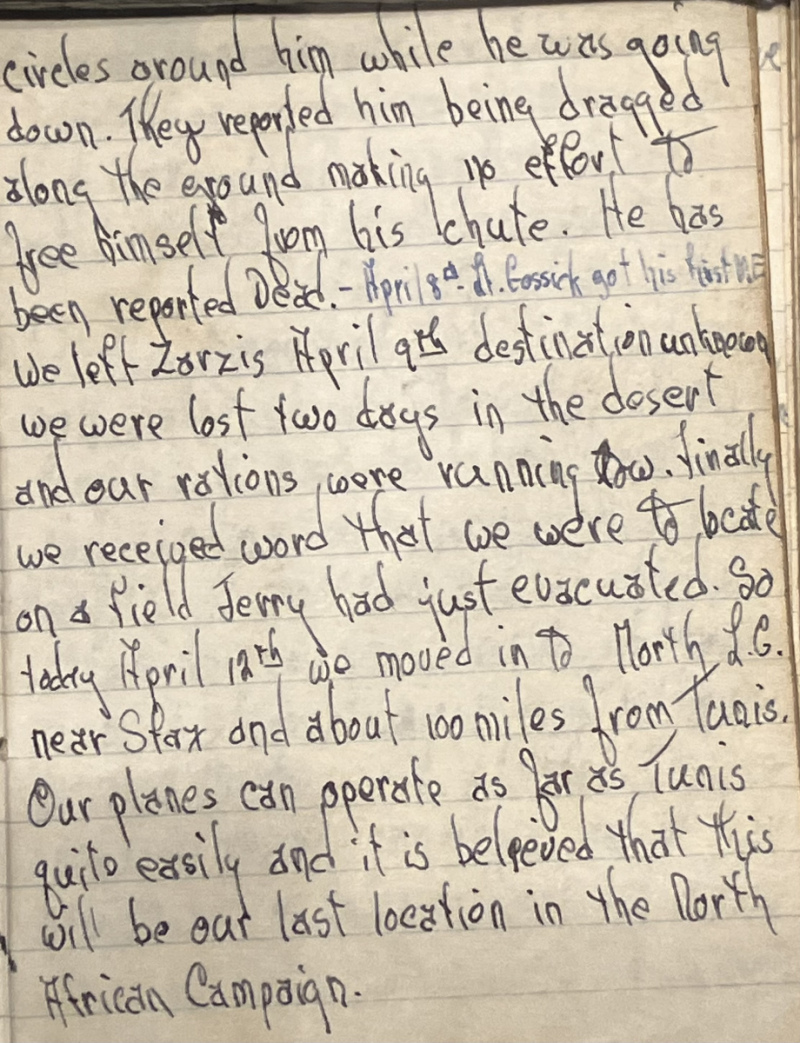 circles around him while he was going
down. They reported him being dragged
along the ground making no effort to
free himself from his chute. He has
been reported Dead. - April 8th. Lt. Gossick got his first M.E
We left Zarzis April 9th destination unknown
we were lost two days in the desert
and our rations were running low. finally
we received word that we were to locate
on a field Jerry had just evacuated. So
today April 12th we moved in to North L.G.
near Sfax and about 100 miles from Tunis.
Our planes can operate as far as Tunis
quito easily and it is beleeved that this
will be our last location in the North
African Campaign.